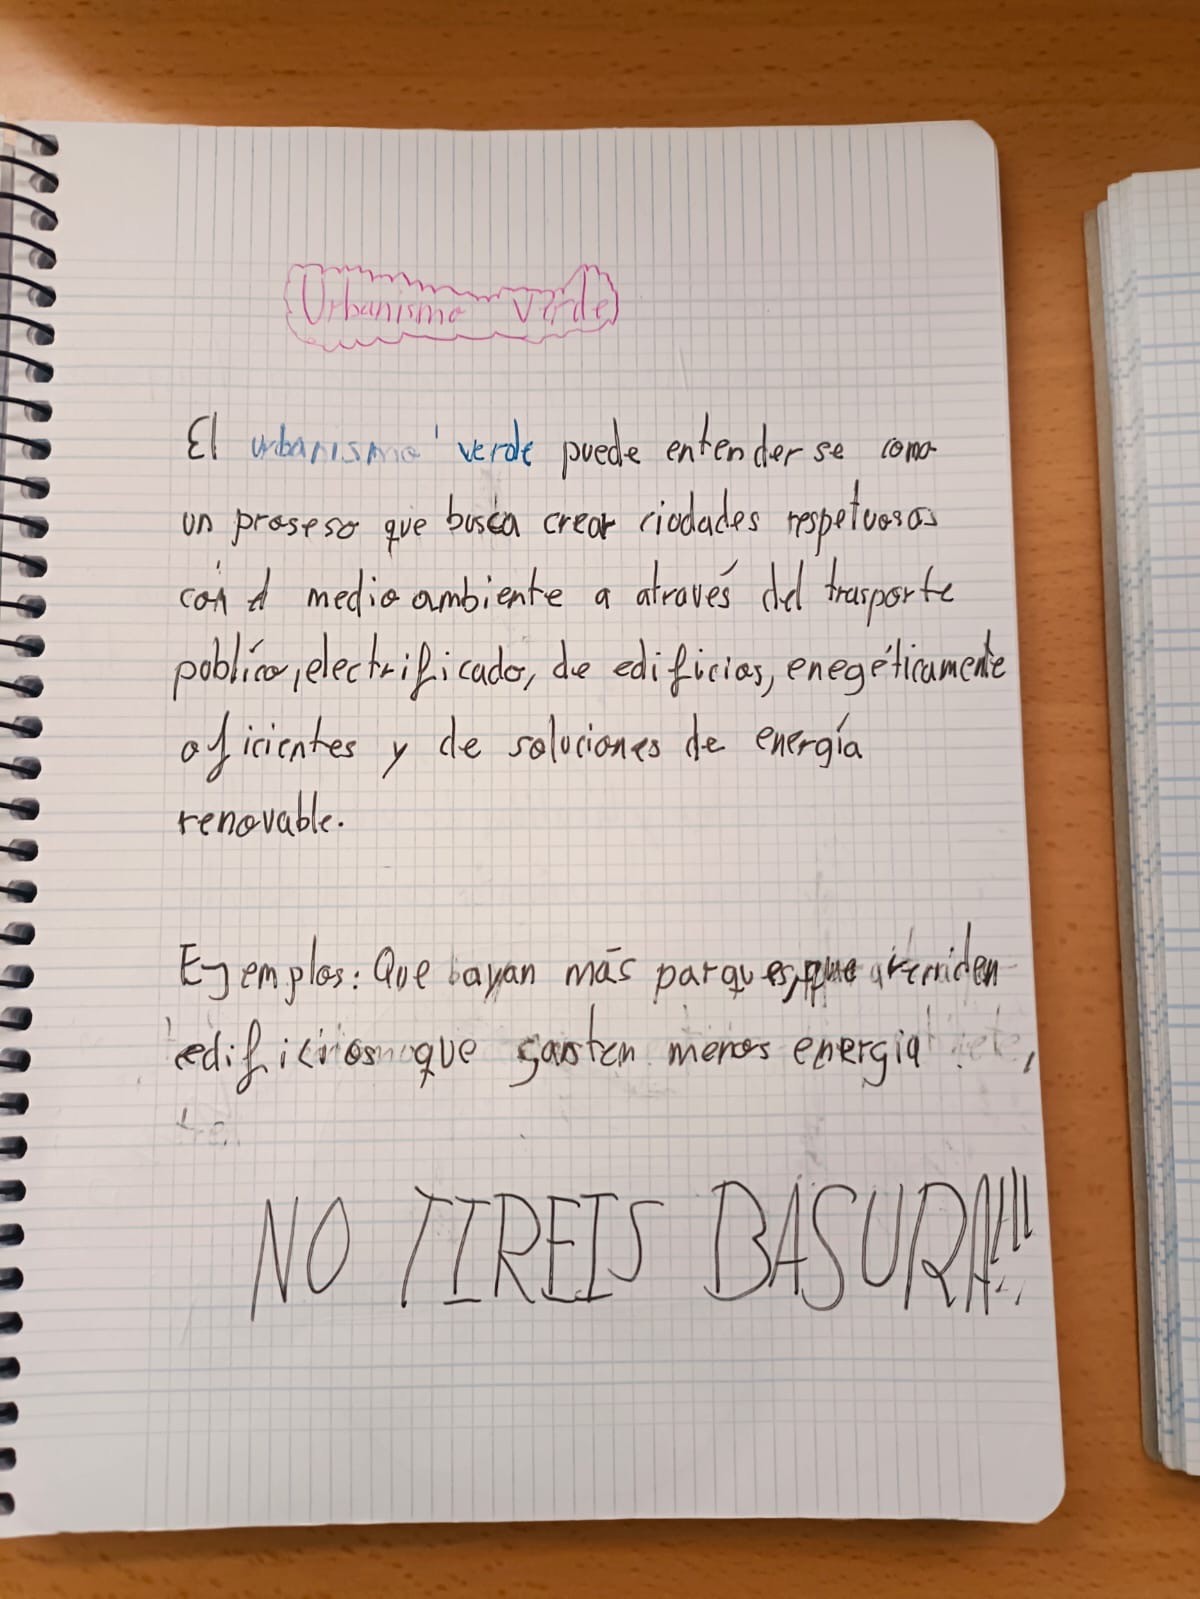 Urbanismo Verde
El urbanismo verde puede entender se como
un proseso que busca crear ciodades respetuosas
con el medio ambiente a através del trasporte
poblíco, electrificado, de edificios, enegéticamente
oficientes y de soluciones de energía
renovable.
Ejemplos: Que bayan más parques, que
edificios que gasten menos energia
NO TIREIS BASURA!!!